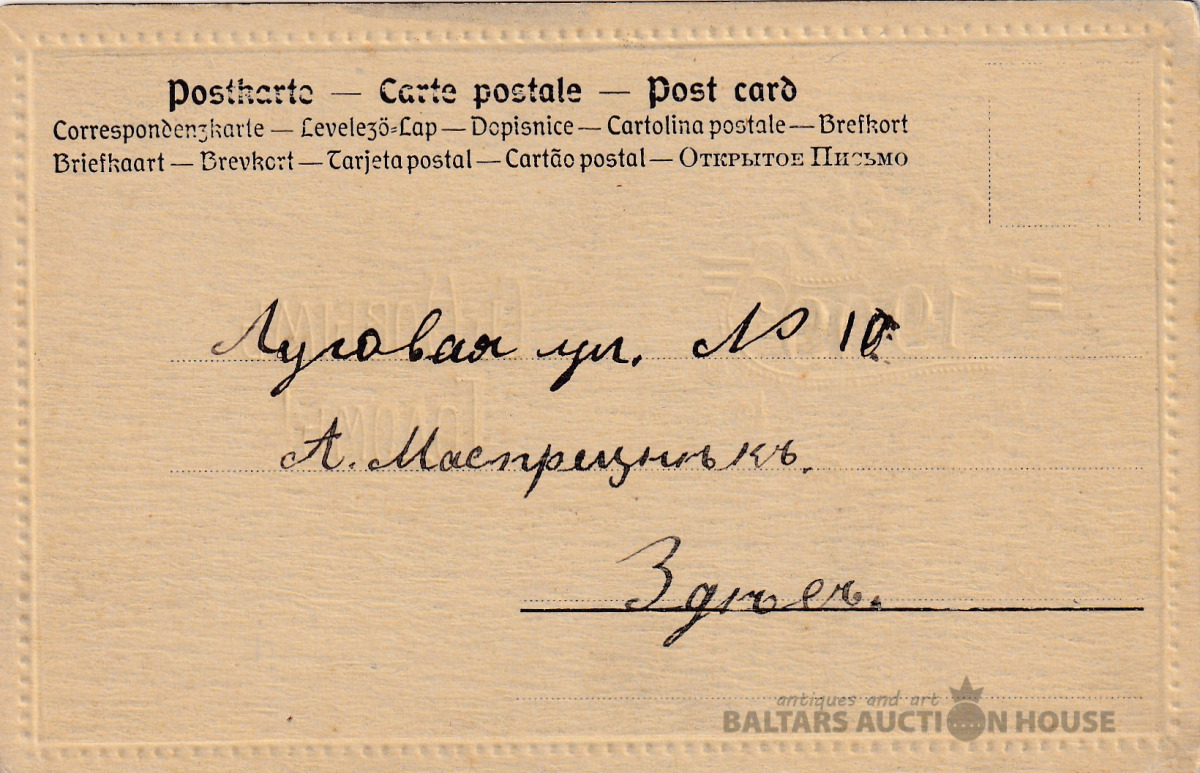 Postkarte — Carte postale — Post card
Correspondenzkarte — Levelező-Lap — Dopisnice — Cartolina postale — Brefkort
Briefkaart — Brevkort — Tarjeta postal — Cartão postal — Открытое Письмо
Луговая ул. № 10
А.
Здѣсь.
antiques and art
BALTARS AUCTION HOUSE